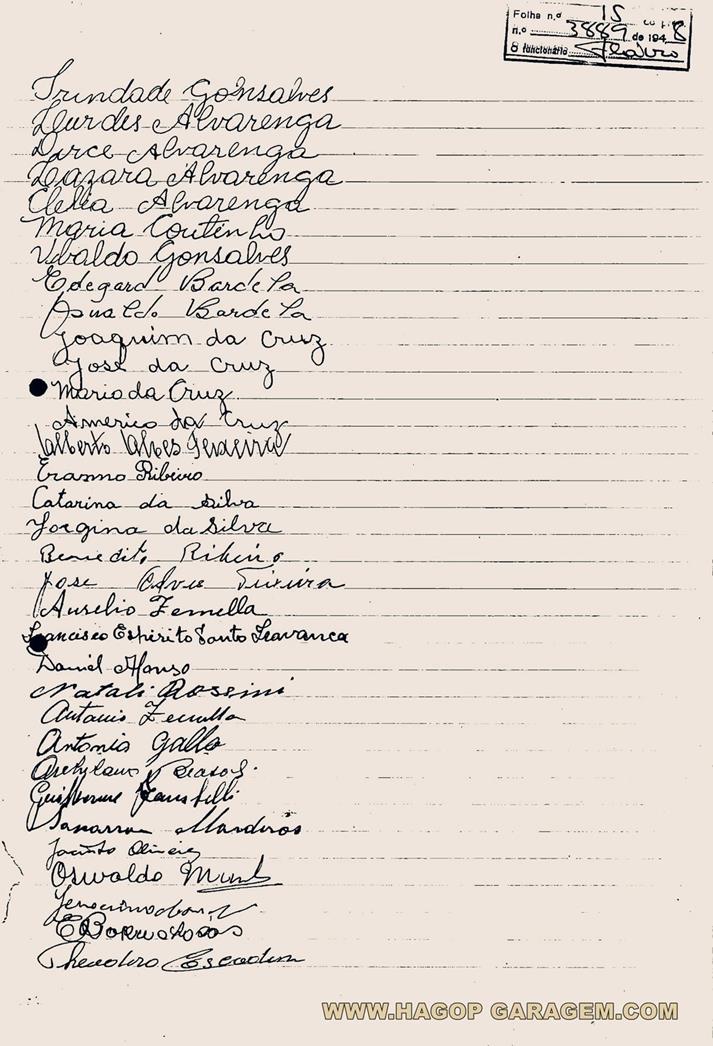 Folha n.º 15
n.º 3889 de 1948
O funcionário
Trindade Gonsalves
Lourdes Alvarenga
Dirce Alvarenga
Lazara Alvarenga
Clelia Alvarenga
Maria Coutinho
Valdo Gonsalves
Edegard Bardela
Osvaldo Bardela
Joaquim da Cruz
José da Cruz
Mario da Cruz
Americo da Cruz
Alberto Alves Teixeira
Erasmo Ribeiro
Catarina da Silva
Jorgina da Silva
Benedito Ribeiro
José Alves Teixeira
Aurelio Zemella
Francisco Espirito Santo Travanca
Daniel Afonso
Natali Rossini
Antonio Zemella
Antonio Gallo
Guilherme
Mardiros
Jacinto Oliveira
Oswaldo
Theodoro
WWW.HAGOP GARAGEM.COM